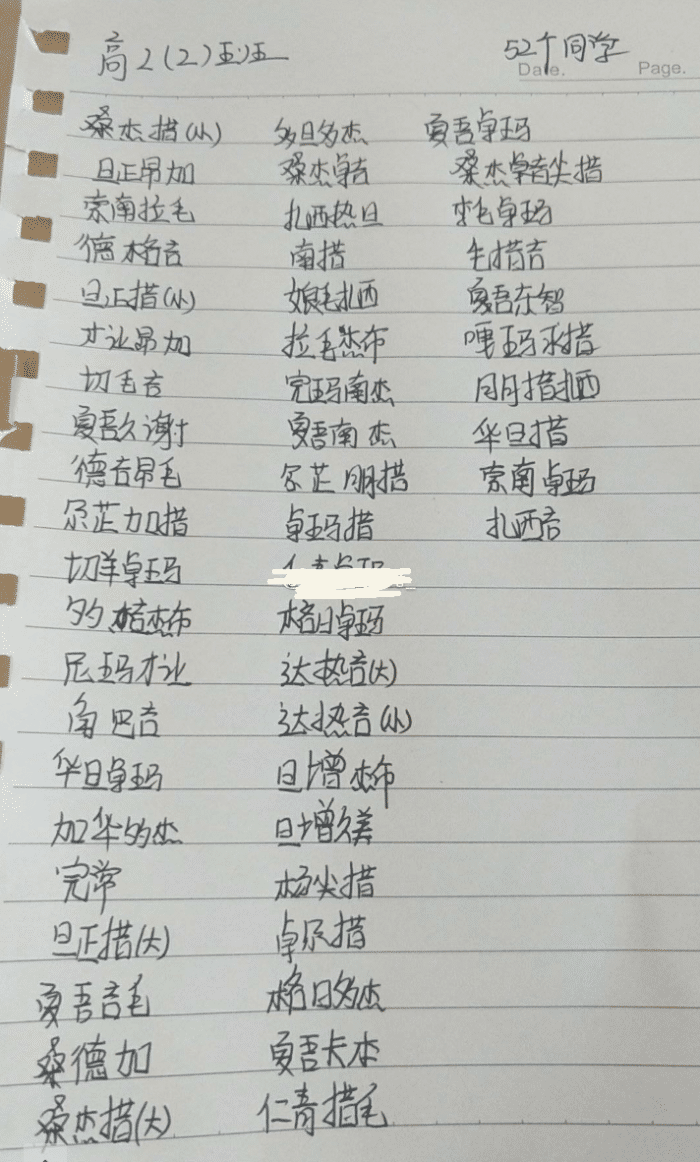 高2(2)班 52个同学
Date. Page.
桑杰措(小) 多旦多杰 夏吾卓玛
旦正昂加 桑杰卓吉 桑杰卓吉尖措
索南拉毛 扎西热旦 李毛卓玛
德格吉 南措 生措吉
旦正措(小) 娘毛扎西 夏吾东智
才让昂加 拉毛杰布 嘎玛求措
切毛吉 完玛南杰 朋措扎西
夏吾久谢 夏吾南杰 华旦措
德吉昂毛 尕芷朋措 索南卓玛
尕芷加措 卓玛措 扎西吉
切羊卓玛
多杰布 格日卓玛
尼玛才让 达热吉(大)
角巴吉 达热吉(小)
华旦卓玛 旦增杰布
加华多杰 旦增久美
完常 杨尖措
旦正措(大) 卓尕措
夏吾吉毛 格日多杰
桑德加 夏吾卡本
桑杰措(大) 仁青措毛